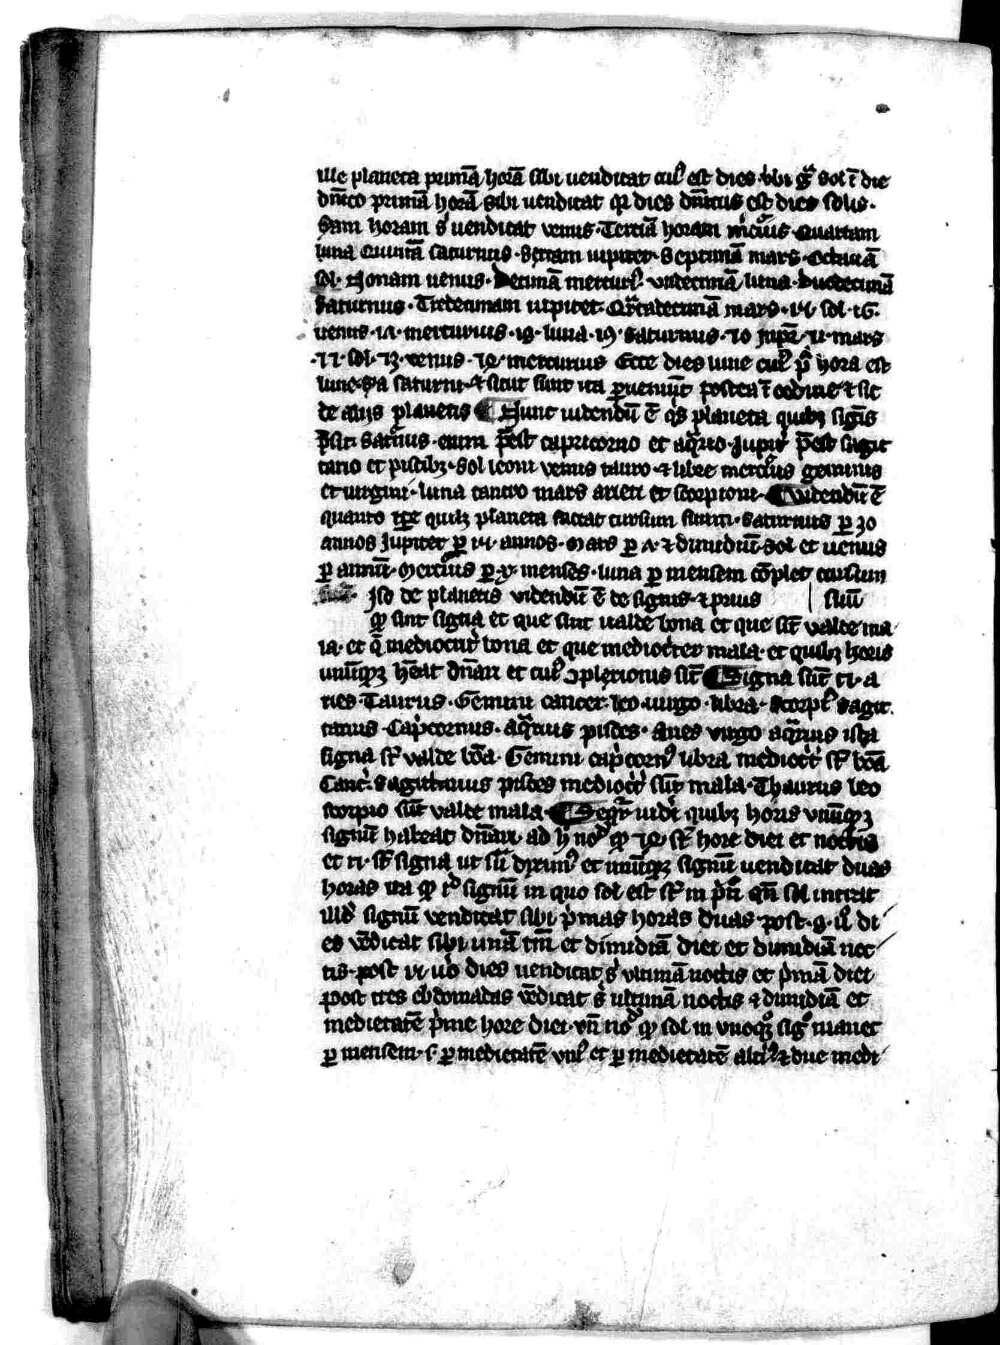 ille planeta primā horā sibi uendicat cui9 est dies. vbi gͦ sol ī die
dn̄ico primā horā sibi uendicat qꝛ dies dn̄icus est dies solis.
dam horam sͥ uendicat venus. Terciā horam mͨcuͥus Quartam
luna Quintā saturnus. Sextam iupiter. Septimā mars. Octauā
sol. Nonam uenus. Decimā mercuriꝰ. vndecimā luna. duodecimā
Saturnus. Tredecimam iupiter. Qͬtadecimā mars. 15 sol. 16.
uenus. 17. mercurius. 18. luna. 19 saturnus. 20 Jupͥr 21. mars
.22. sol. 23. venus. 24. mercurius Ecce dies lune cuiꝰ pͥ hora est
lune. 2a saturni. ⁊ sicut sunt ita ꝑueniūt postea ī ordine ⁊ sic
de aliis planetis Nunc uidendū ē qͥs planeta quibꝫ signͥs
p̄sit. Satͥnus. enim p̄est capricorno et aqͥrio. Jupiͭ p̄est sagit
tario et piscibꝫ. Sol leoni venus tauro ⁊ libre mercͥus geminis
et uirgini. luna cancro mars arieti et scorpioni. Uidendū ē
quanto tꝑe quilꝫ planeta faciat cursum suum. Saturnus ꝑ 30
annos Jupiter ꝑ 12. annos. Mars ꝑ 2. ⁊ dimidiū. Sol et uenus
ꝑ annū. Mercͥius ꝑ .x. menses. luna ꝑ mensem cōplet cursum
iso de planetis videndū ē de signis. ⁊ prius | suū
qͦ sint signa et que sint ualde bona et que sīt valde ma
la. et q̄ mediocritͬ bona et que mediocriter mala. et quibꝫ horis
unūqͦꝫ heāt dn̄ari et cuiꝰ ꝯplexionis sīt Signa sūt 12. a
ries. Taurus. Gemini cancer. leo. uirgo. libra. Scorpiꝰ Sagit
tarius. Capͥcornus. Aqͥrius pisces. Aries virgo aqͥrius ista
signa st̄ valde bōa. Gemini capͥcornꝰ libra mediocͥtͬ st̄ bōa
Cancͬ. Sagittarius pisces mediocͥtͬ sūt mala. Thaurus leo
scorpio sūt valde mala. Seqͥtͬ uidͥe quibꝫ horis vnūqͦꝫ
signū habeat dn̄ari. ad hͦ noͣ qͦ 24. st̄ hore diei et noctis
et 12. st̄ signa ut sūͣ diximꝰ et unūqͦꝫ signū uendicat duas
horas ita qͦ iͫ signū in quo sol est st̄ in pͥn qn̄ sol intrat
illđ signū vendicat sibi pͥmas horas duas. post. 8. uͦ di
es vēdicat sibi unā tm̄ et dimidiā diei et dimidiā noc
tis. post 15 uͦo dies uendicat sͥ ultimā noctis et pͥmā diei
post tres ebdomadas vēdicat sͥ ultimā noctis ⁊ dimidiā et
medietatē pͥme hore diei. vn̄ noͣ qͦ sol in vnoqͦꝫ sigͦ manet
ꝑ mensem. s. ꝑ medietatē vniꝰ et ꝑ medietatē altͥiꝰ ⁊ due medi